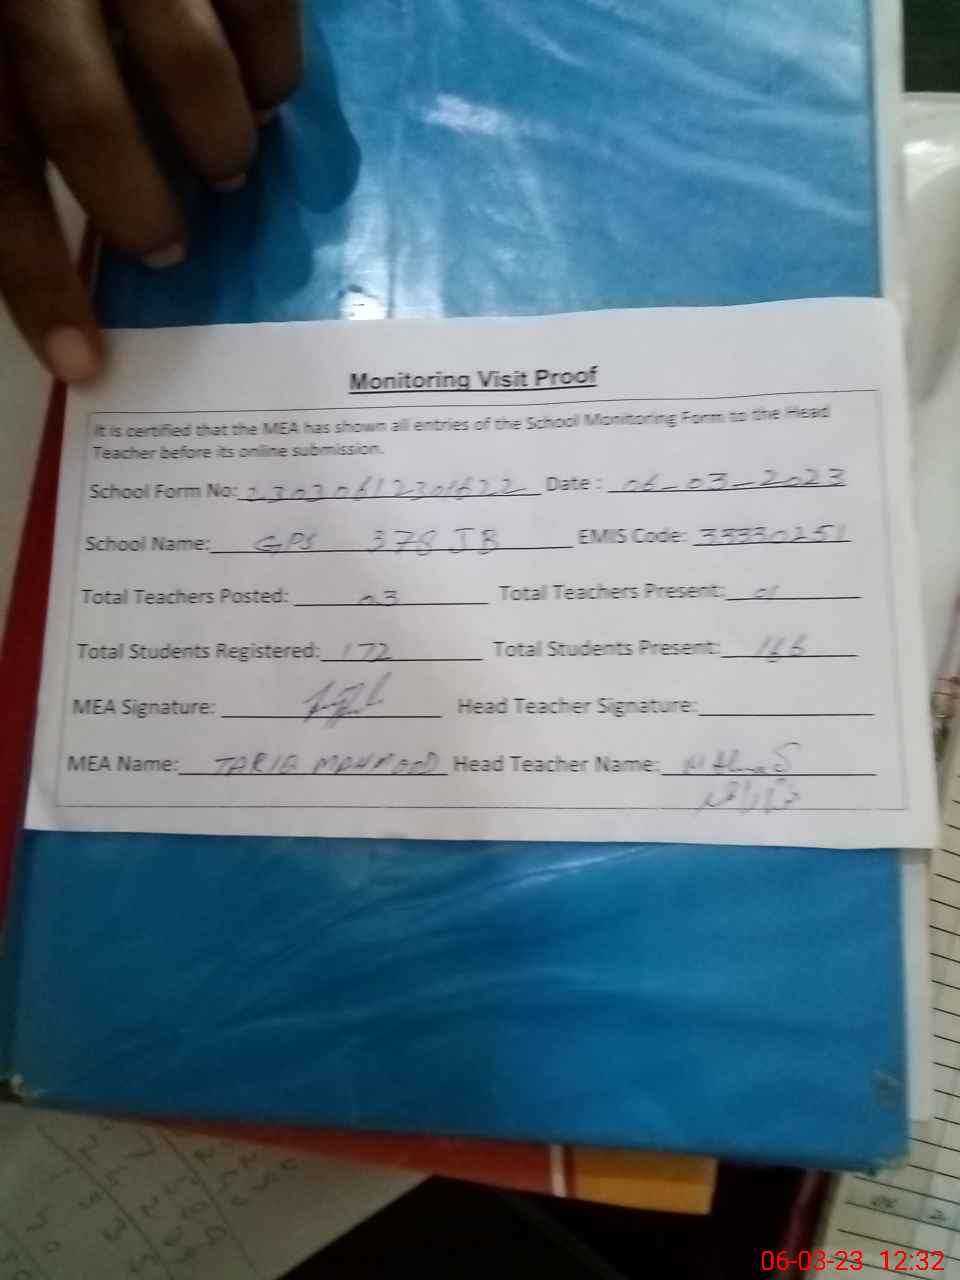 Monitoring Visit Proof
It is certified that the MEA has shown all entries of the School Monitoring Form to the Head
Teacher before its online submission.
School Form No: Date : 06-03-2023
School Name: GPS 378 JB EMIS Code: 33330251
Total Teachers Posted: 03 Total Teachers Present: 01
Total Students Registered: 172 Total Students Present: 166
MEA Signature: Head Teacher Signature:
MEA Name: TARIQ MAHMOOD Head Teacher Name:
06-03-23 12:32